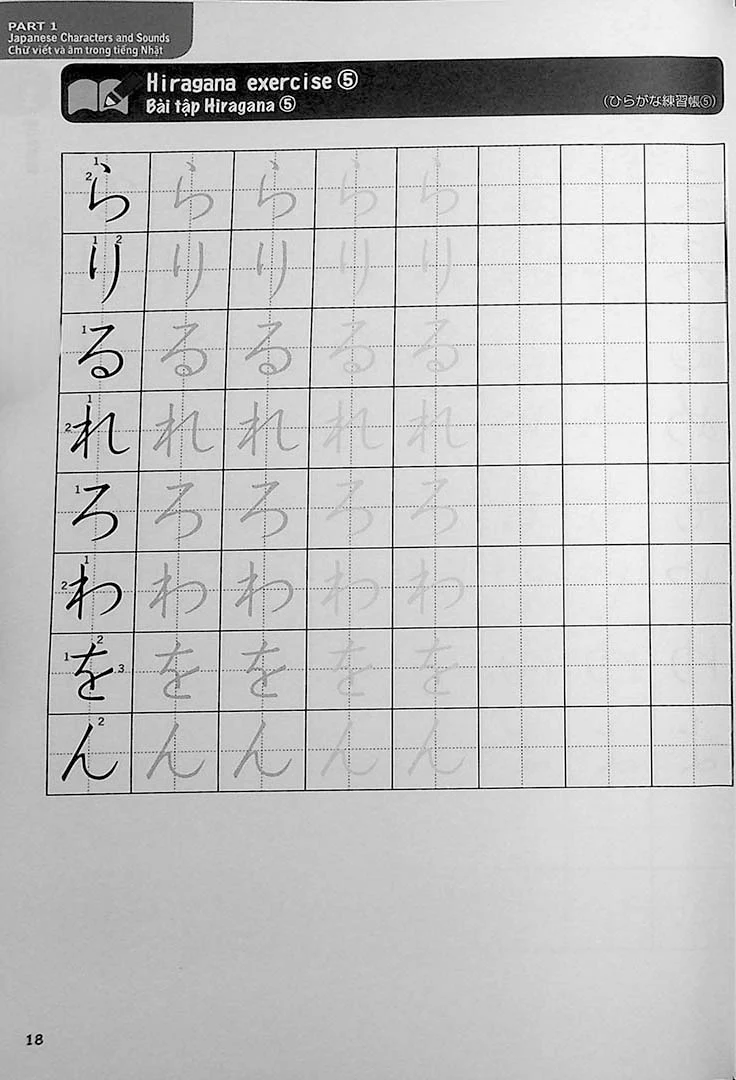 PART 1
Japanese Characters and Sounds
Chữ viết và âm trong tiếng Nhật
Hiragana exercise ⑤
Bài tập Hiragana ⑤
(ひらがな練習帳⑤)
1 2 ら ら ら ら ら
1 2 り り り り り
1 る る る る る
1 2 れ れ れ れ れ
1 ろ ろ ろ ろ ろ
1 2 わ わ わ わ わ
1 2 3 を を を を を
2 ん ん ん ん ん
18